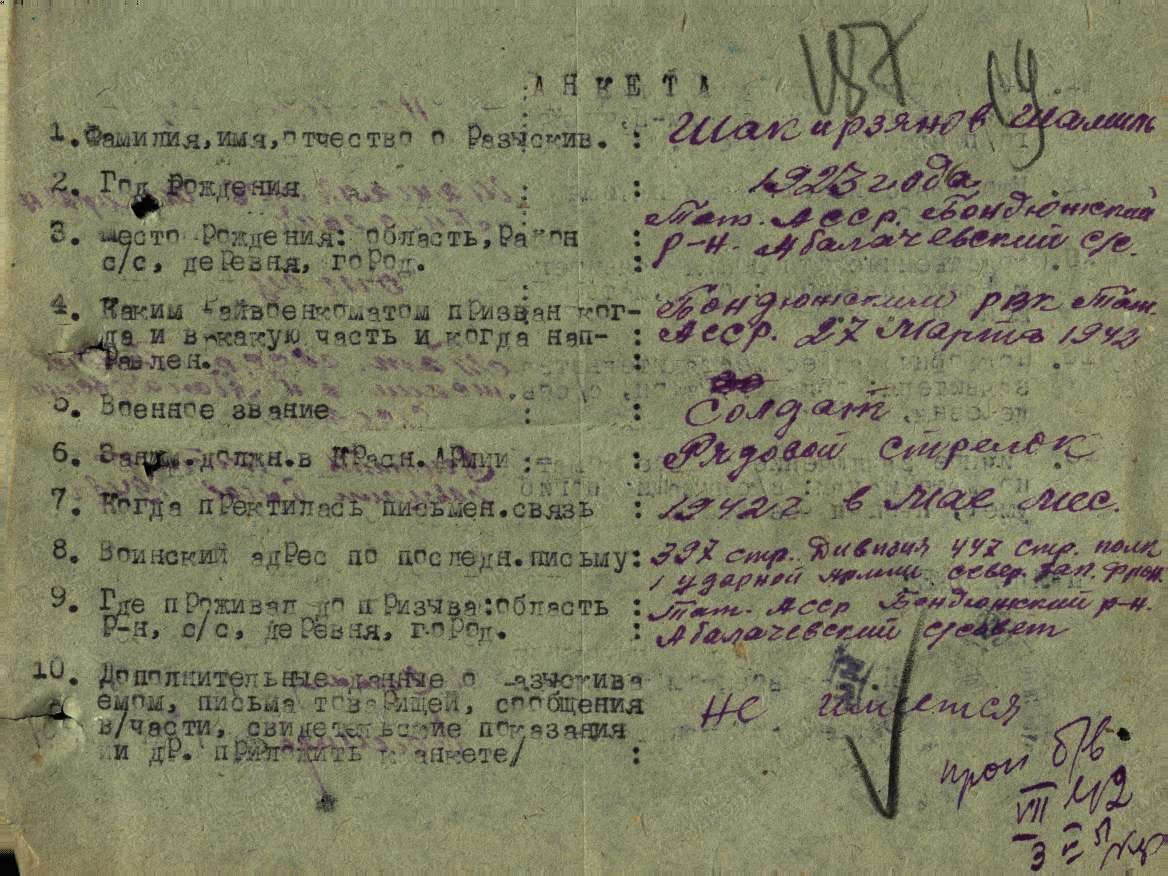 А Н К Е Т А
1. Фамилия,имя,отчество о Разыскив. : Шакирзянов Шамиль
2. Год Рождения : 1923 года
Тат. АССР. Бондюжский
3. Место Рождения: область,Район : р-н. Абалачевский с/с.
с/с, деревня, город. :
4. Каким Райвоенкоматом призван ког- Бондюжским рвк Тат.
да и в какую часть и когда нап- : АССР. 27 Марта 1942
равлен. :
5. Военное звание : Солдат
6. Заним.должн.в Красн.Армии :- : Рядовой стрелок
7. Когда пректилась письмен.связь : 1942 г в Мае мес.
8. Воинский адрес по последн.письму: 397 стр. Дивизия 447 стр. полк
1 ударной Армии север. зап. фрон.
9. Где проживал до призыва:область : Тат. АССР Бондюжский р-н.
Р-н, с/с, деревня, город. : Абалачевский с/совет
10. Дополнительные данные о разыскива
емом, письма товарищей, сообщения не имеется
в/части, свидетельские показания
ии др. приложить к анкете/ :
проп б/в
VII 42